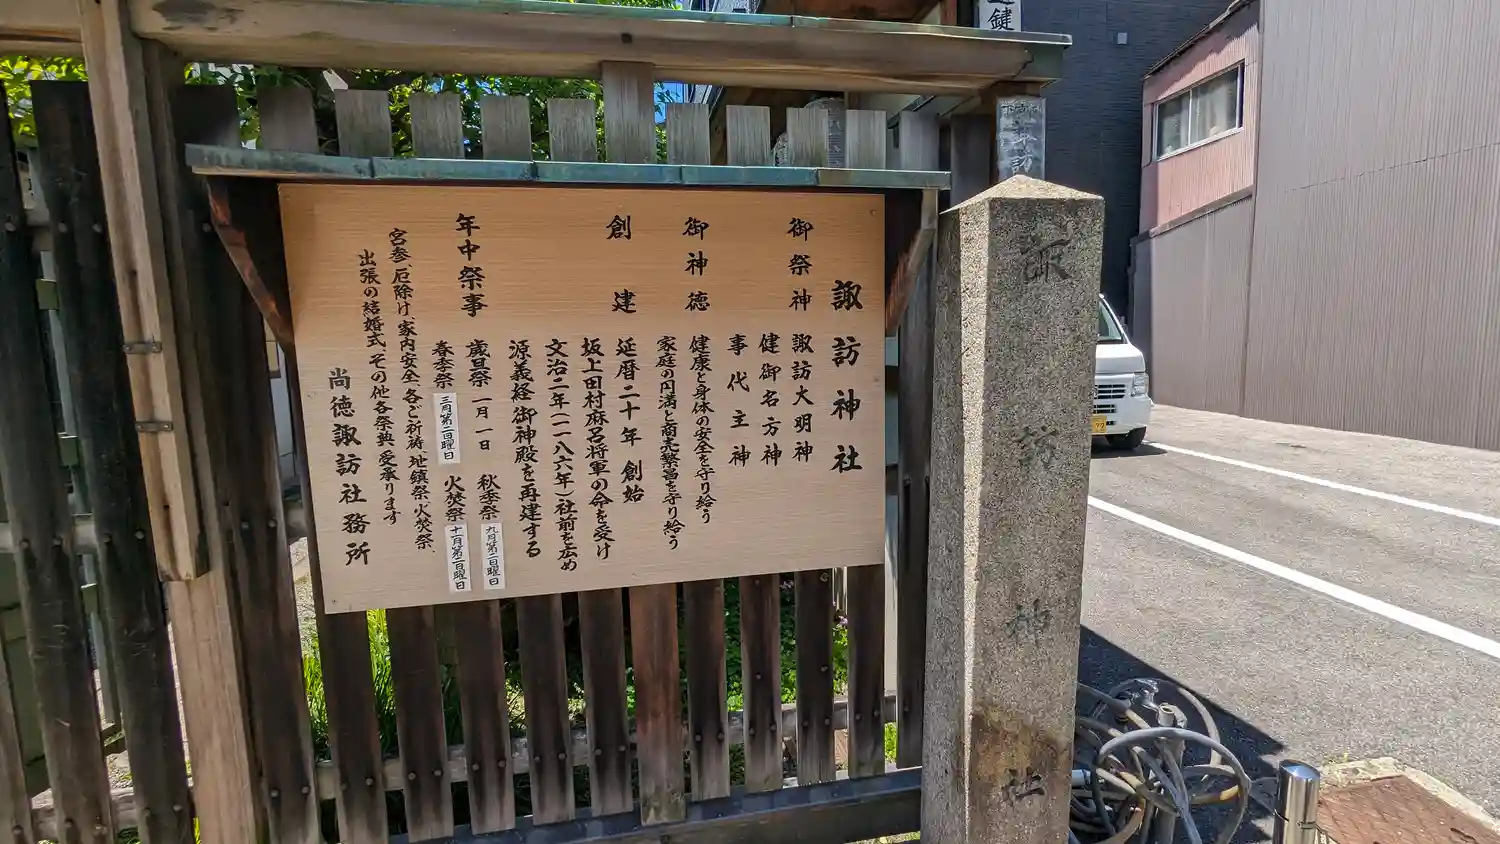 諏訪神社
御祭神 諏訪大明神
健御名方神
事代主神
御神徳 健康と身体の安全を守り給う
家庭の円満と商売繁昌を守り給う
創建 延暦二十年 創始
坂上田村麻呂将軍の命を受け
文治二年(一一八六年)社前を広め
源義経 御神殿を再建する
年中祭事 歳旦祭 一月一日 秋季祭 九月第二日曜日
春季祭 三月第二日曜日 火焚祭 十一月第二日曜日
宮参 厄除け、家内安全、各ご祈祷、地鎮祭、火焚祭、
出張の結婚式、その他各祭典、受承ります
尚徳諏訪社務所
諏訪神社
鍵